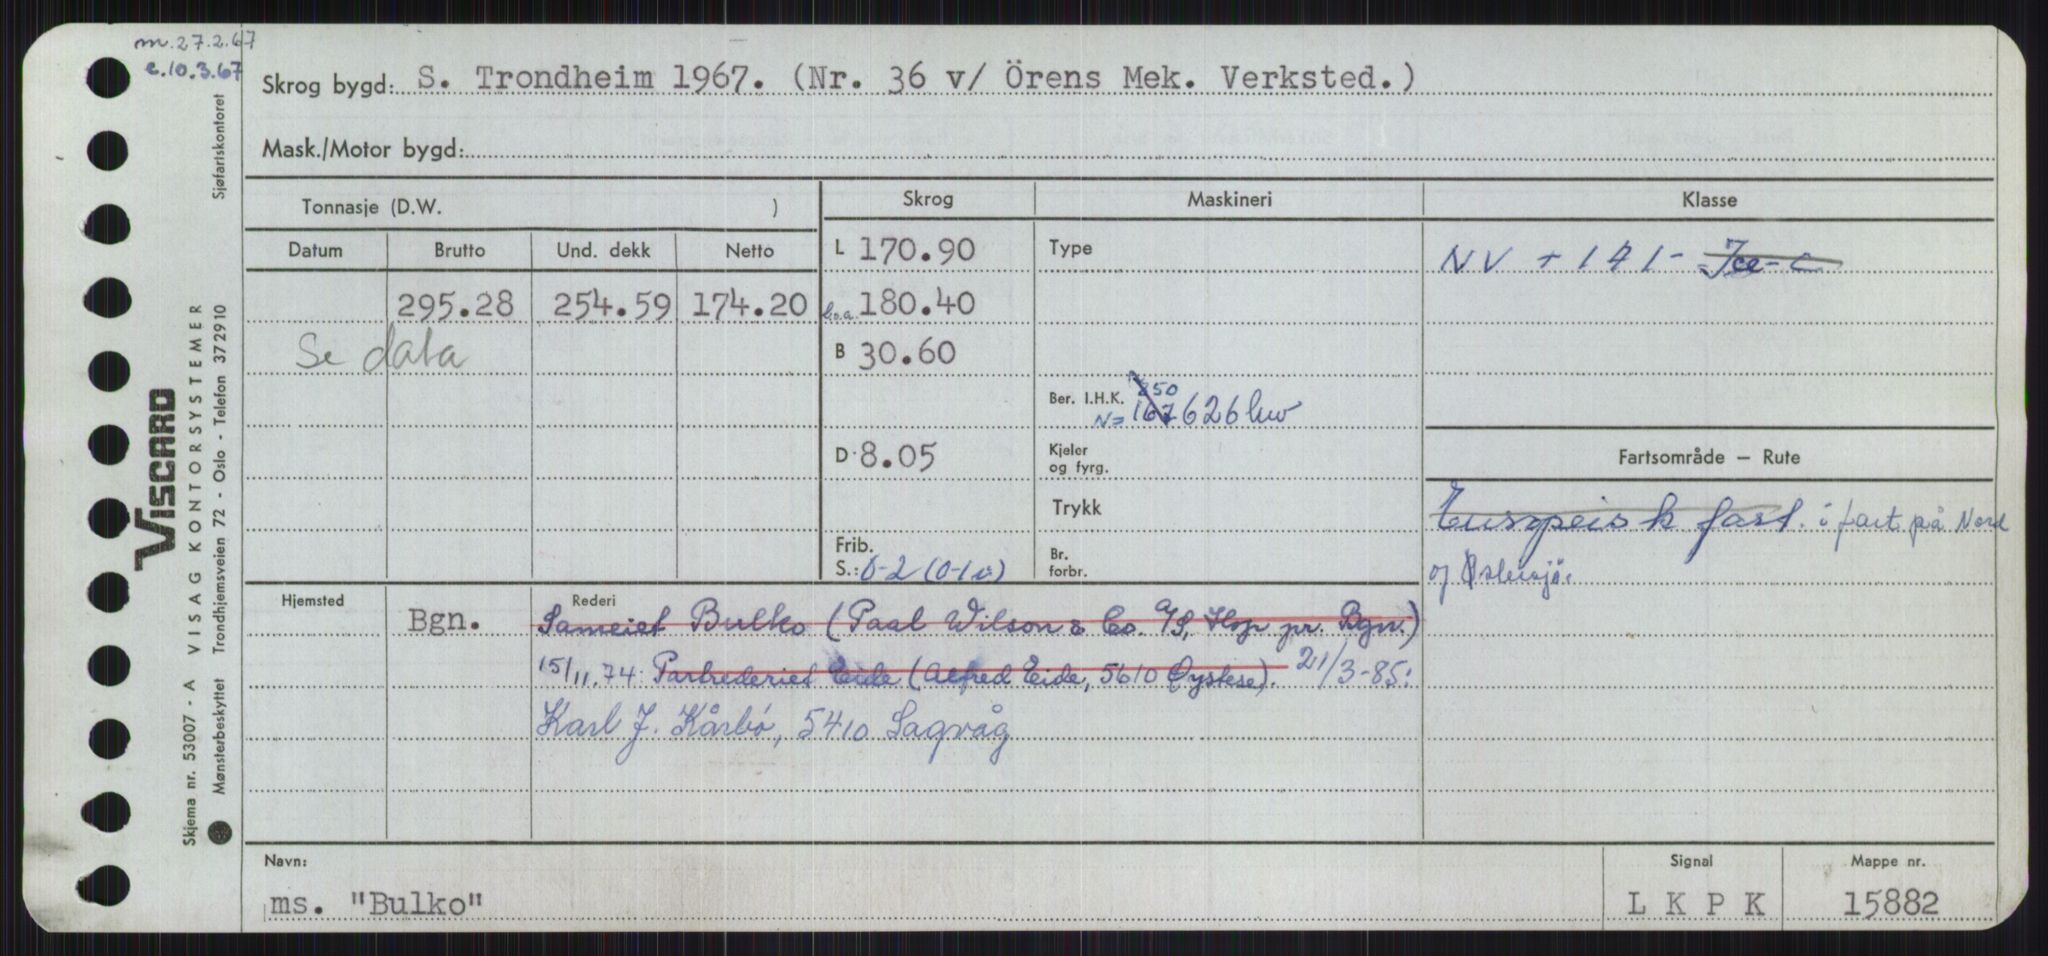 m. 27.2.67
e. 10.3.67
Skrog bygd: S. Trondheim 1967. (Nr. 36 v/ Örens Mek. Verksted.)
Mask./Motor bygd:
Tonnasje (D.W. )
Skrog
Maskineri
Klasse
Datum
Brutto
Und. dekk
Netto
L 170.90
Type
NV + 1A1- Ice-C
295.28 254.59 174.20
l.o.a. 180.40
Se data
B 30.60
Ber. I.H.K. 850
N= 167 626 kw
D. 8.05
Kjeler
og fyrg.
Fartsområde — Rute
Trykk
Europeisk fart. i fart på Nord
og Østersjø.
Frib.
S.: 0-2 (0-1 v)
Br.
forbr.
Hjemsted
Bgn.
Rederi
Sameiet Bulko (Paal Wilson & Co. A/S, Hop pr. Bgn.)
15/11.74: Partrederiet Eide (Alfred Eide, 5610 Øystese). 21/3-85:
Karl J. Kårbø, 5410 Sagvåg
Navn:
ms. "Bulko"
Signal
L K P K
Mappe nr.
15882
Sjøfartskontoret
VISCARD
VISAG KONTORSYSTEMER
Trondhjemsveien 72 - Oslo - Telefon 372910
Skjema nr. 53007 - A
Mønsterbeskyttet